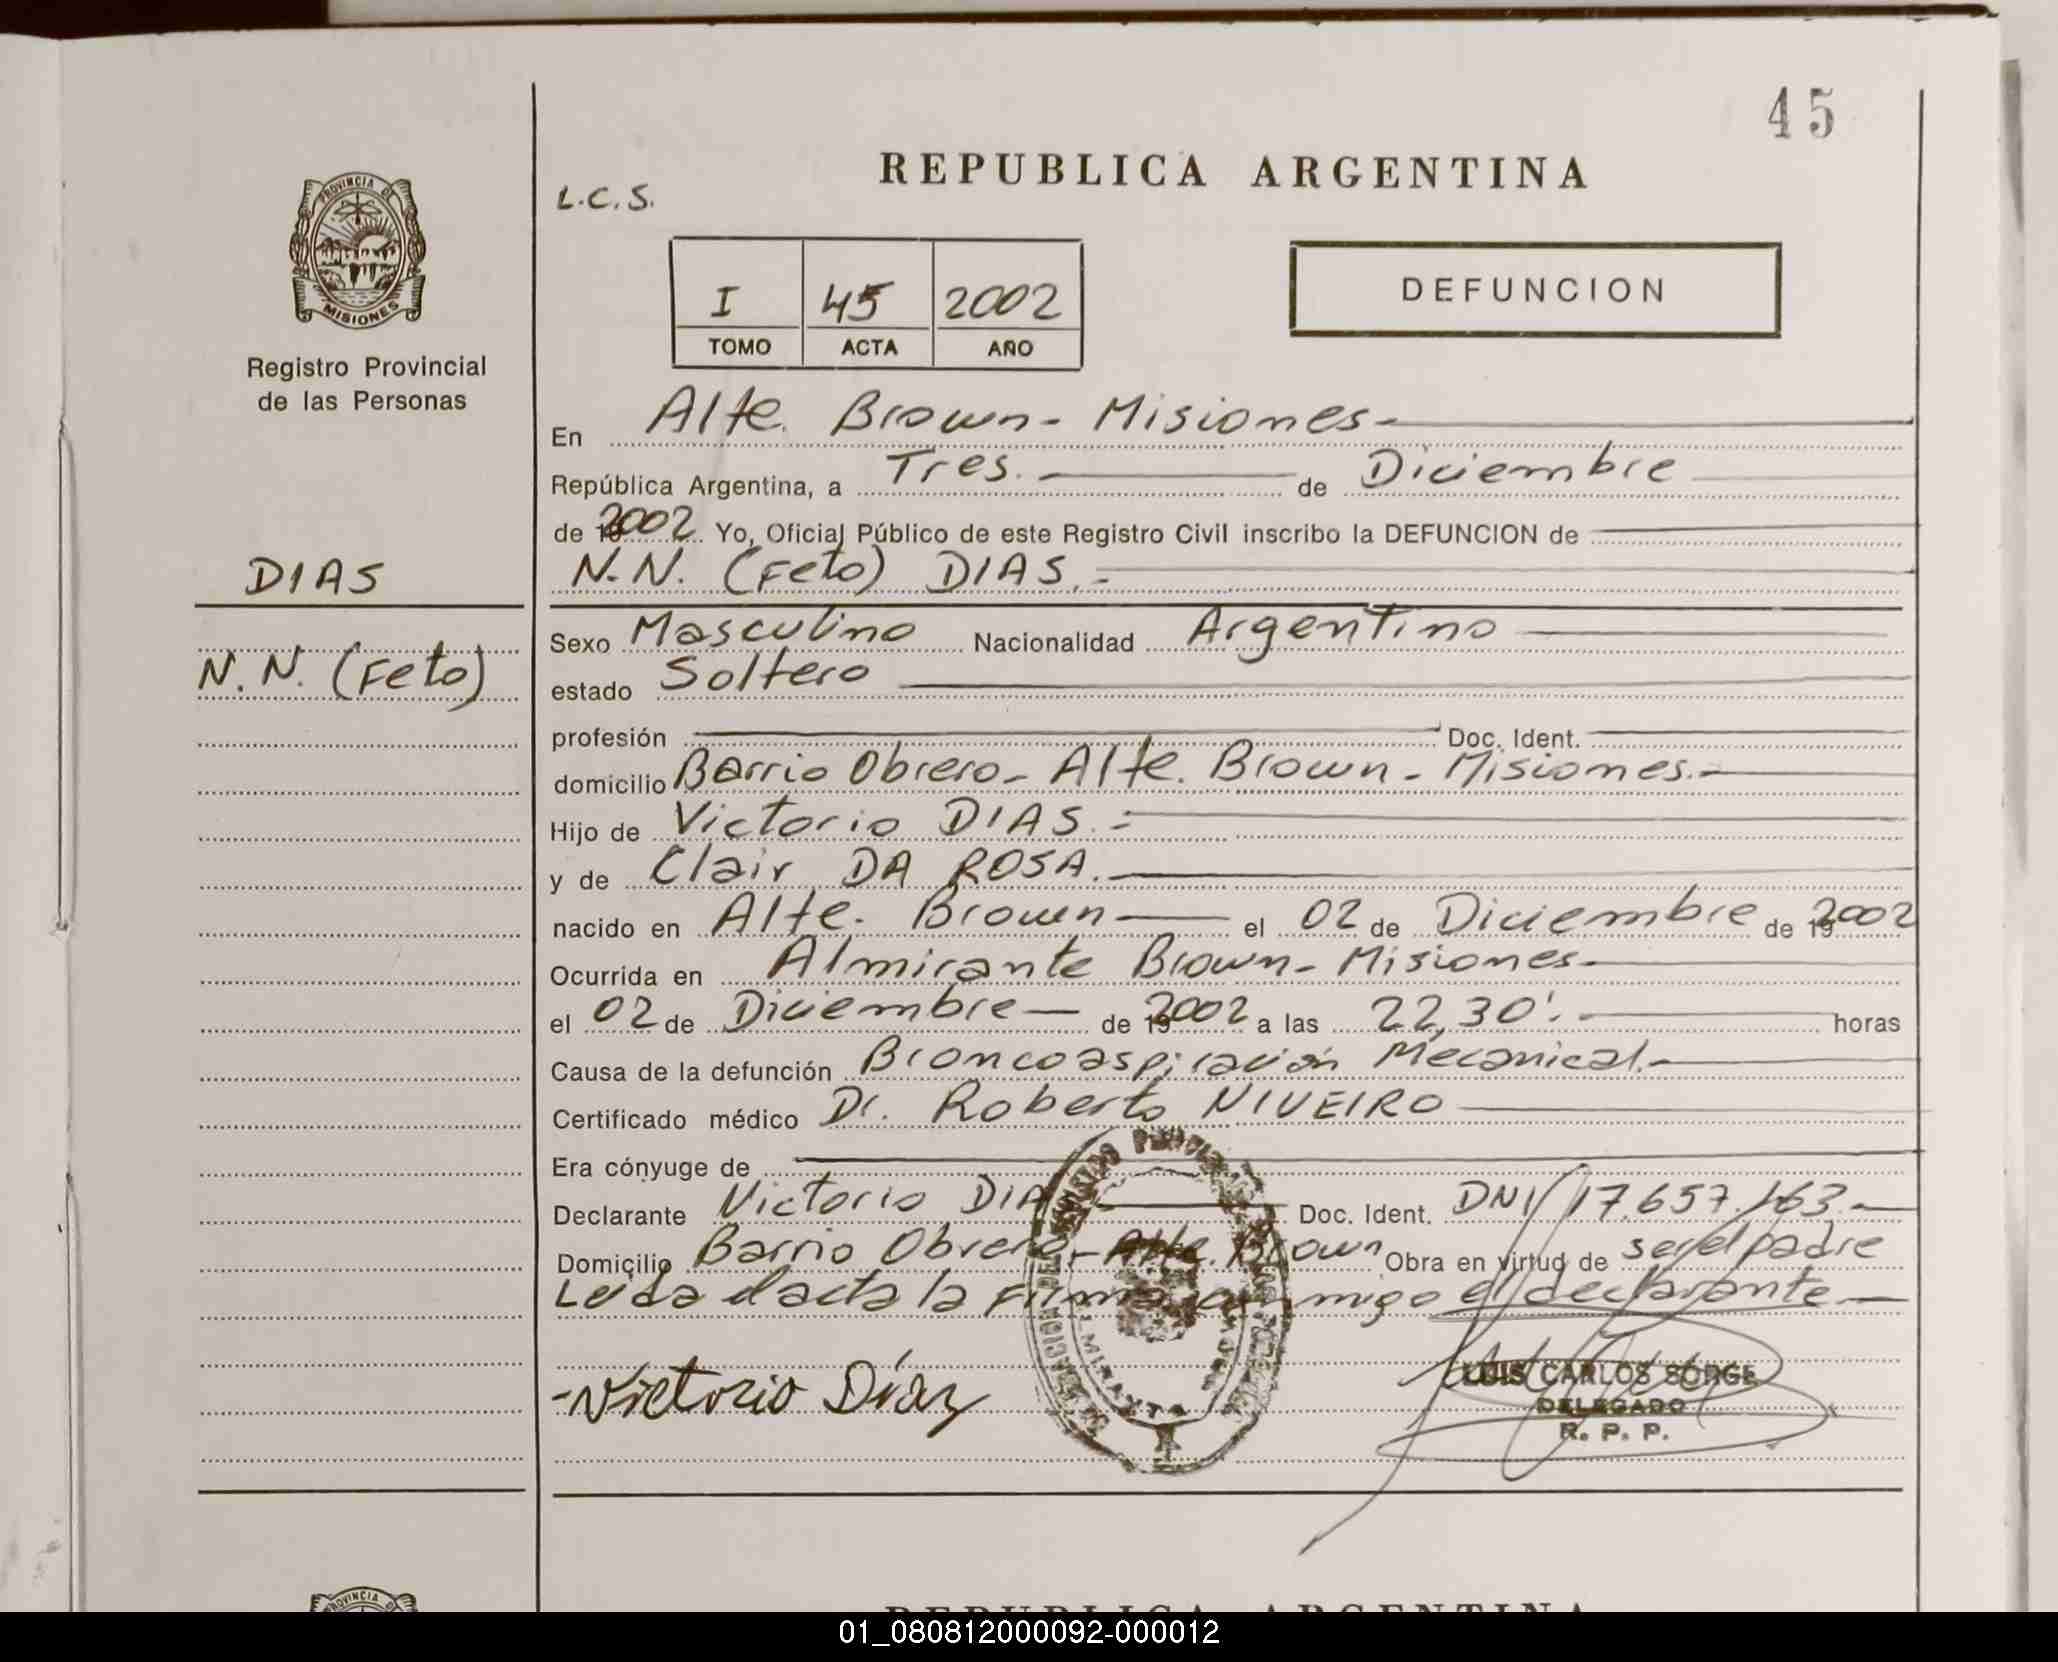 45
REPUBLICA ARGENTINA
L.C.S.
PROVINCIA DE
MISIONES
DEFUNCION
I 45 2002
TOMO ACTA AÑO
Registro Provincial
de las Personas
En Alte. Brown - Misiones -
República Argentina, a Tres. de Diciembre
de 2002 Yo, Oficial Público de este Registro Civil inscribo la DEFUNCION de
N.N. (Feto) DIAS. -
DIAS
N.N. (Feto)
Sexo Masculino Nacionalidad Argentino
estado Soltero
profesión Doc. Ident.
domicilio Barrio Obrero - Alte. Brown - Misiones. -
Hijo de Victorio DIAS. -
y de Clair DA ROSA. -
nacido en Alte. Brown el 02 de Diciembre de 2002
Ocurrida en Almirante Brown - Misiones -
el 02 de Diciembre de 2002 a las 22,30'. horas
Causa de la defunción Broncoaspiración Mecanical. -
Certificado médico Dr. Roberto NIVEIRO
Era cónyuge de
Declarante Victorio DIA Doc. Ident. DNI 17.657.163. -
Domicilio Barrio Obrero - Alte. Brown Obra en virtud de ser el padre
Leida el acta la firma conmigo el declarante -
- Victorio Díaz
LUIS CARLOS SORGE
DELEGADO
R. P. P.
PROVINCIA D
REPUBLICA ARGENTINA
01_080812000092-000012